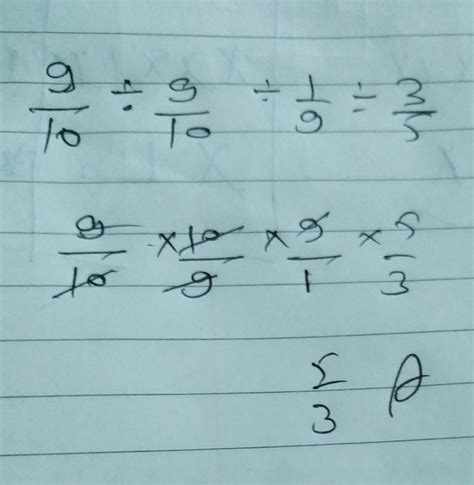 9/10 ÷ 9/10 ÷ 1/9 ÷ 3/5
9/10 × 10/9 × 9/1 × 5/3
5/3